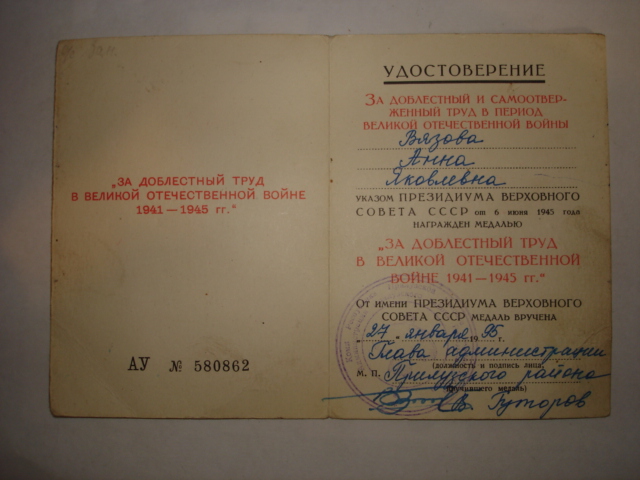 „ЗА ДОБЛЕСТНЫЙ ТРУД
В ВЕЛИКОЙ ОТЕЧЕСТВЕННОЙ ВОЙНЕ
1941—1945 гг.“
АУ № 580862
УДОСТОВЕРЕНИЕ
ЗА ДОБЛЕСТНЫЙ И САМООТВЕР-
ЖЕННЫЙ ТРУД В ПЕРИОД
ВЕЛИКОЙ ОТЕЧЕСТВЕННОЙ ВОЙНЫ
Вязова
Анна
Яковлевна
УКАЗОМ ПРЕЗИДИУМА ВЕРХОВНОГО
СОВЕТА СССР от 6 июня 1945 года
НАГРАЖДЕН МЕДАЛЬЮ
„ЗА ДОБЛЕСТНЫЙ ТРУД
В ВЕЛИКОЙ ОТЕЧЕСТВЕННОЙ
ВОЙНЕ 1941—1945 гг.“
От имени ПРЕЗИДИУМА ВЕРХОВНОГО
СОВЕТА СССР МЕДАЛЬ ВРУЧЕНА
„27“ января 1995 г.
Глава администрации
(должность и подпись лица,
М. П. Прилузского района
вручившего медаль)
В. Гуторов